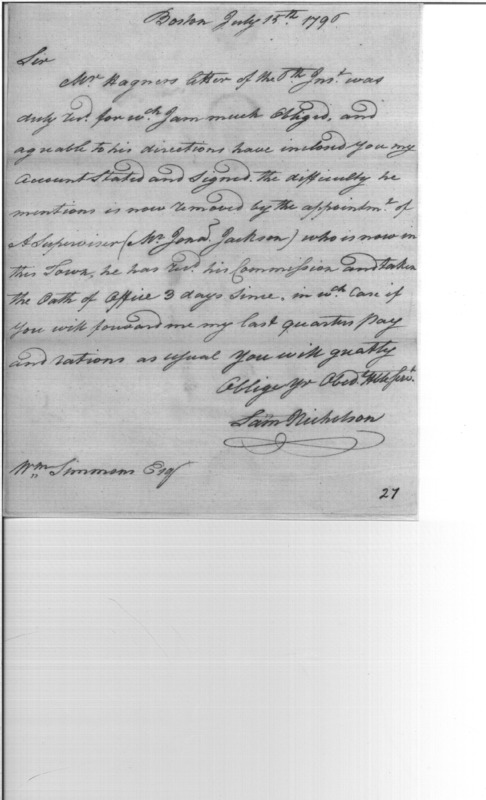 Boston July 15th 1796
Sir
Mr Hagners letter of the 6th Inst was
duly recd. for wch I am much Obliged, and
agreable to his directions have inclosed you my
Account Stated and Signed. the difficulty he
mentions is now removed by the appointmt. of
A Superviser (Mr Jona. Jackson) who is now in
this Town, he has recd. his Commission and taken
the Oath of Office 3 days Since, in wch. Case if
You will forward me my last quarters pay
and rations as usual you will greatly
Oblige yr Obedt Hble Servt.
Sam Nicholson
Wm Simmons Esq
27